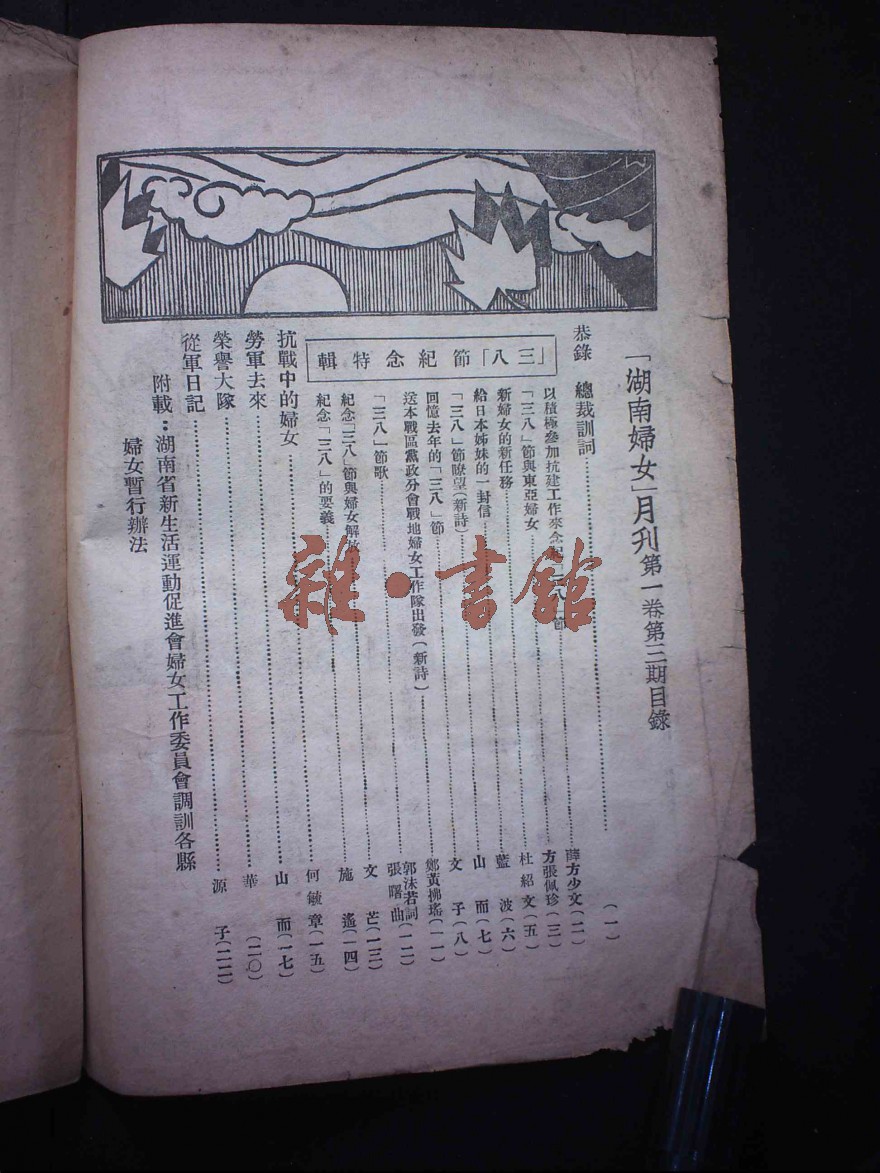 「湖南婦女」月刊第一卷第三期目錄
恭錄 總裁訓詞……(一)
「三八」節紀念特輯
以積極參加抗建工作來念紀「三八」節……薛方少文(二)
「三八」節與東亞婦女……方張佩珍(三)
新婦女的新任務……杜紹文(五)
給日本姊妹的一封信……藍波(六)
「三八」節瞭望(新詩)……山而(七)
回憶去年的「三八」節……文子(八)
送本戰區黨政分會戰地婦女工作隊出發(新詩)……鄭黃拂瑤(一一)
「三八」節歌……郭沫若詞 張曙曲(一二)
紀念「三八」節與婦女解放……文芒(一三)
紀念「三八」的要義……施遙(一四)
抗戰中的婦女……何敏章(一五)
勞軍去來……山而(一七)
榮譽大隊……華(二〇)
從軍日記……源子(二二)
附載:湖南省新生活運動促進會婦女工作委員會調訓各縣
婦女暫行辦法
雜·書館